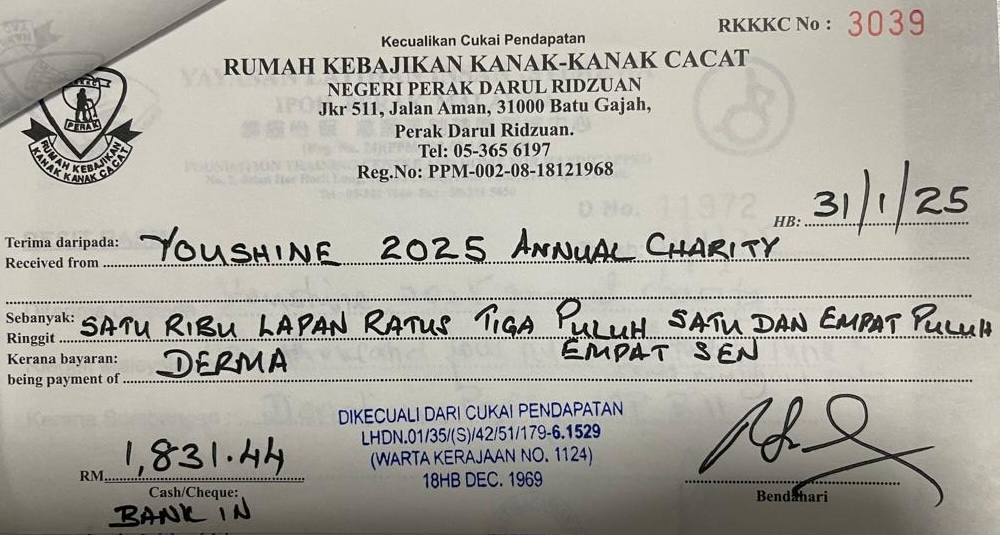 RKKKC No : 3039
Kecualikan Cukai Pendapatan
RUMAH KEBAJIKAN KANAK-KANAK CACAT
NEGERI PERAK DARUL RIDZUAN
Jkr 511, Jalan Aman, 31000 Batu Gajah,
Perak Darul Ridzuan.
Tel: 05-365 6197
Reg.No: PPM-002-08-18121968
PERAK
RUMAH KEBAJIKAN
KANAK KANAK CACAT
HB: 31/1/25
Terima daripada:
Received from YOUSHINE 2025 ANNUAL CHARITY
Sebanyak:
Ringgit SATU RIBU LAPAN RATUS TIGA PULUH SATU DAN EMPAT PULUH
EMPAT SEN
Kerana bayaran:
being payment of DERMA
DIKECUALI DARI CUKAI PENDAPATAN
LHDN.01/35/(S)/42/51/179-6.1529
(WARTA KERAJAAN NO. 1124)
18HB DEC. 1969
RM 1,831.44
Cash/Cheque:
BANK IN
Bendahari